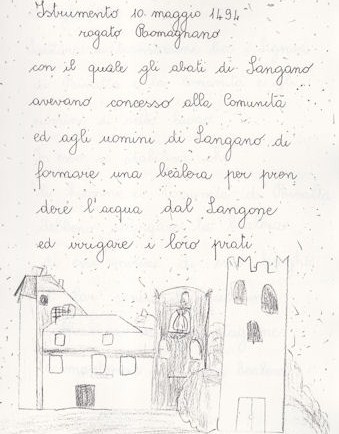 Istrumento 10 maggio 1494
rogato Romagnano
con il quale gli abati di Sangano
avevano concesso alla Comunità
ed agli uomini di Sangano di
formare una bealera per pren
dere l'acqua dal Sangone
ed irrigare i loro prati